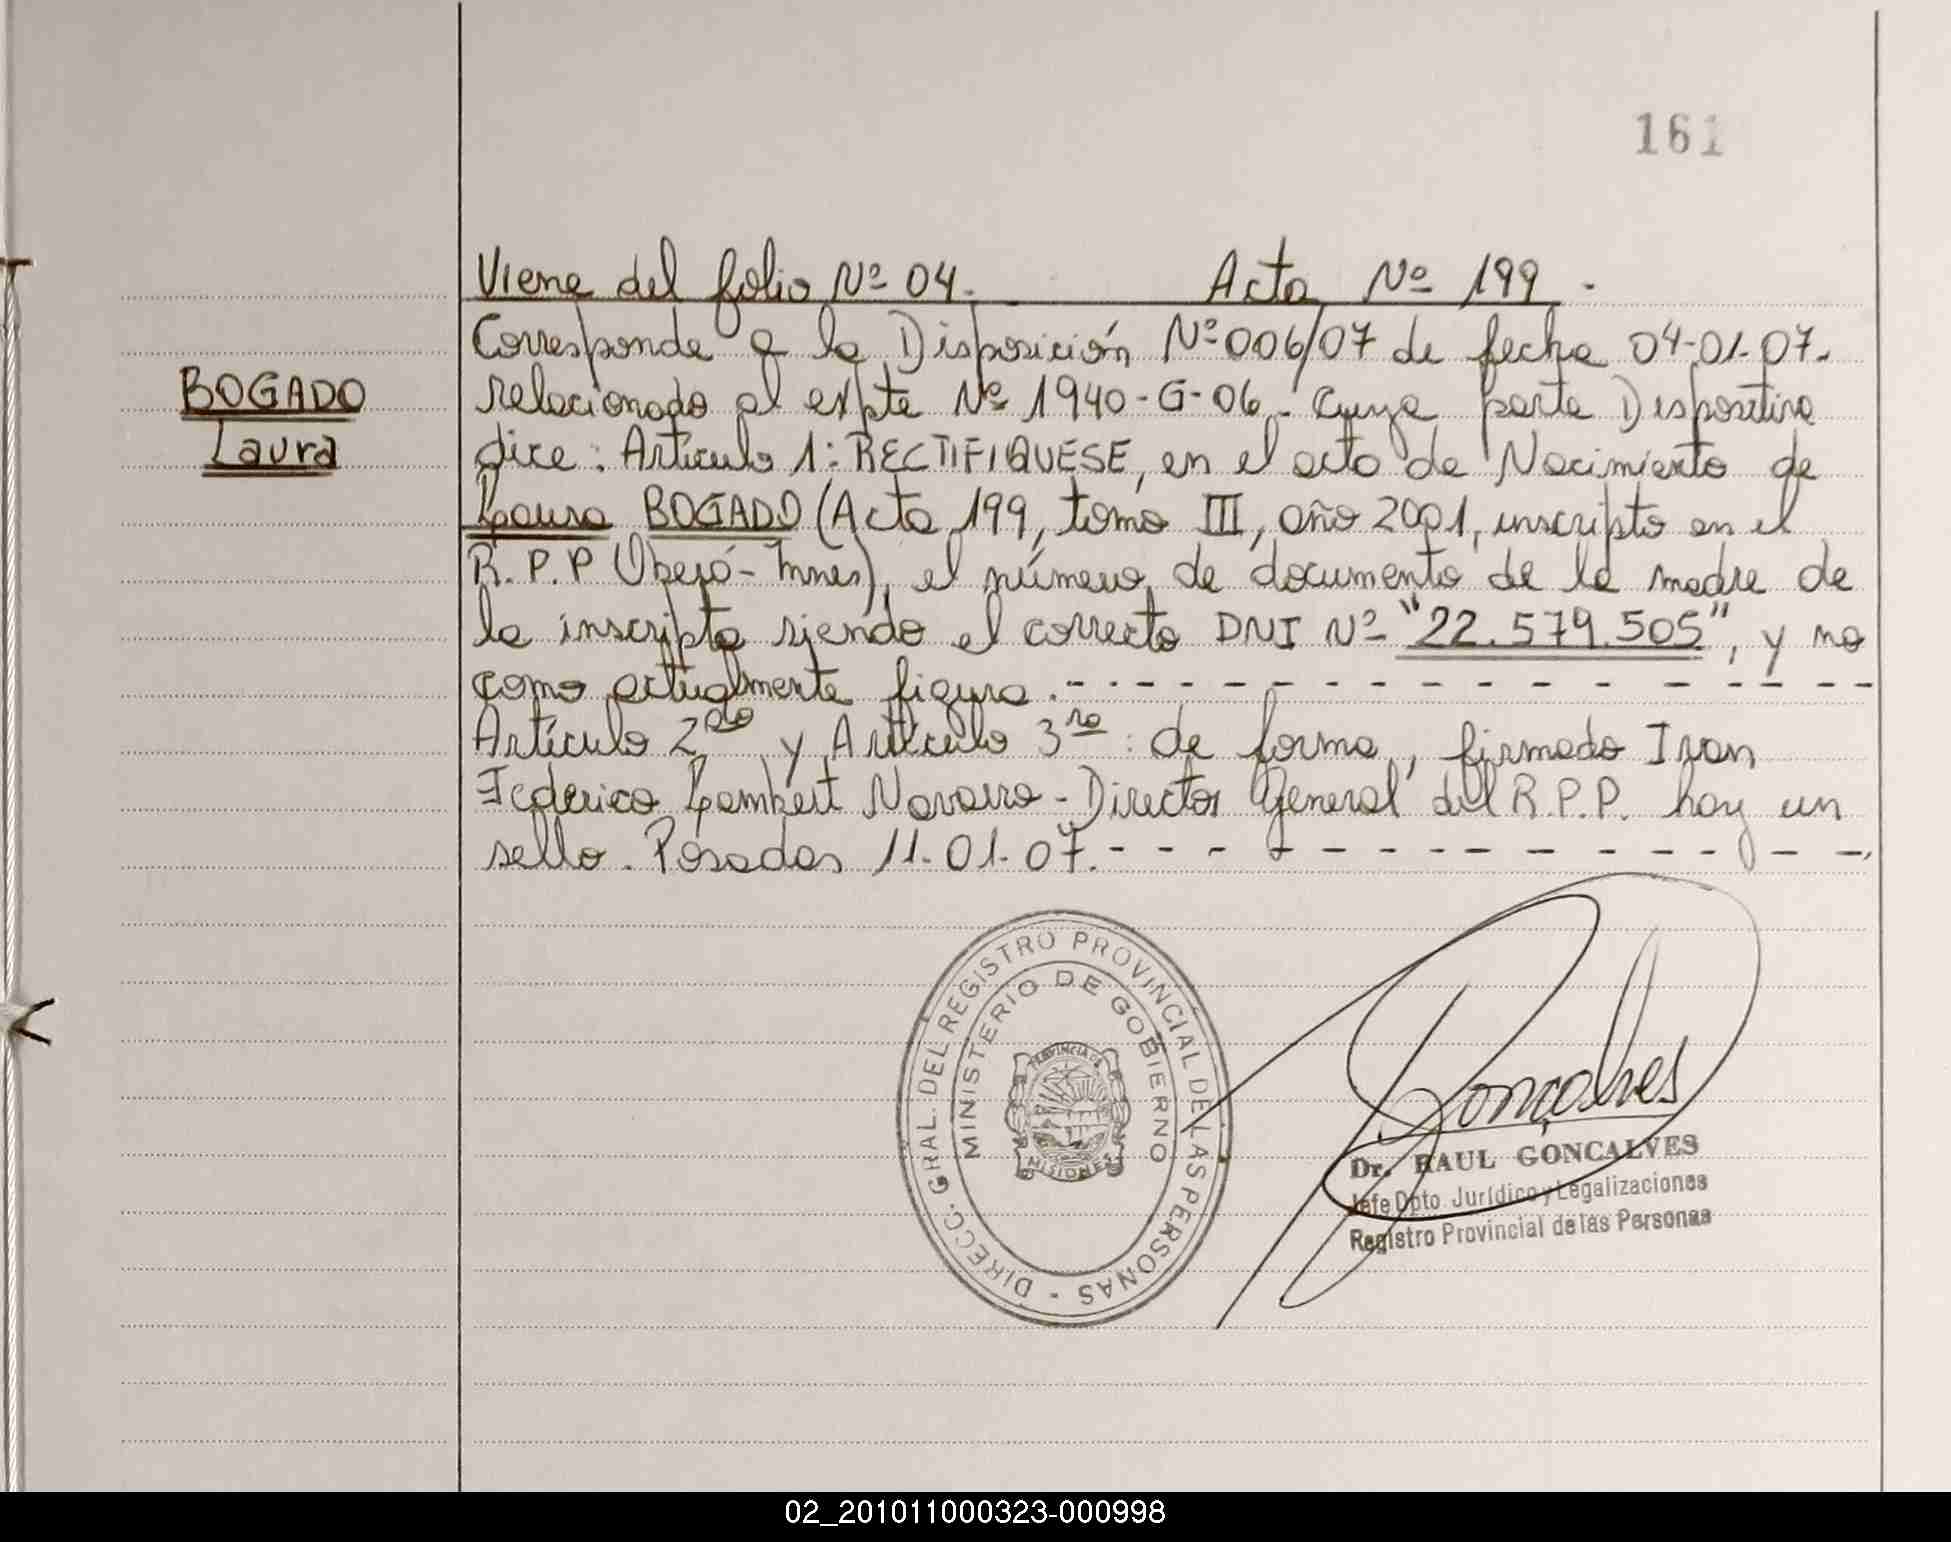 161
Viene del folio Nº 04. Acta Nº 199.
Corresponde a la Disposición Nº 006/07 de fecha 04-01-07.
BOGADO
relacionado al expte Nº 1940-G-06. Cuya parte Dispositiva
Laura
dice: Artículo 1: RECTIFIQUESE, en el acta de Nacimiento de
Laura BOGADO (Acta 199, tomo III, año 2001, inscripta en el
R.P.P Oberá-Mnes), el número de documento de la madre de
la inscripta siendo el correcto DNI Nº "22.579.505", y no
como actualmente figura.- - - - - - - - - - - - - - - -
Artículo 2do y Artículo 3ro: de forma, firmado Ivan
Federico Lambert Navarro - Director General del R.P.P. hay un
sello. Posadas 11-01-07.- - - - - - - - - - - - - - -
DIRECC. GRAL. DEL REGISTRO PROVINCIAL DE LAS PERSONAS -
MINISTERIO DE GOBIERNO
PROVINCIA DE
MISIONES
Goncalves
Dr. RAUL GONCALVES
Jefe Dpto. Jurídico y Legalizaciones
Registro Provincial de las Personas
02_201011000323-000998